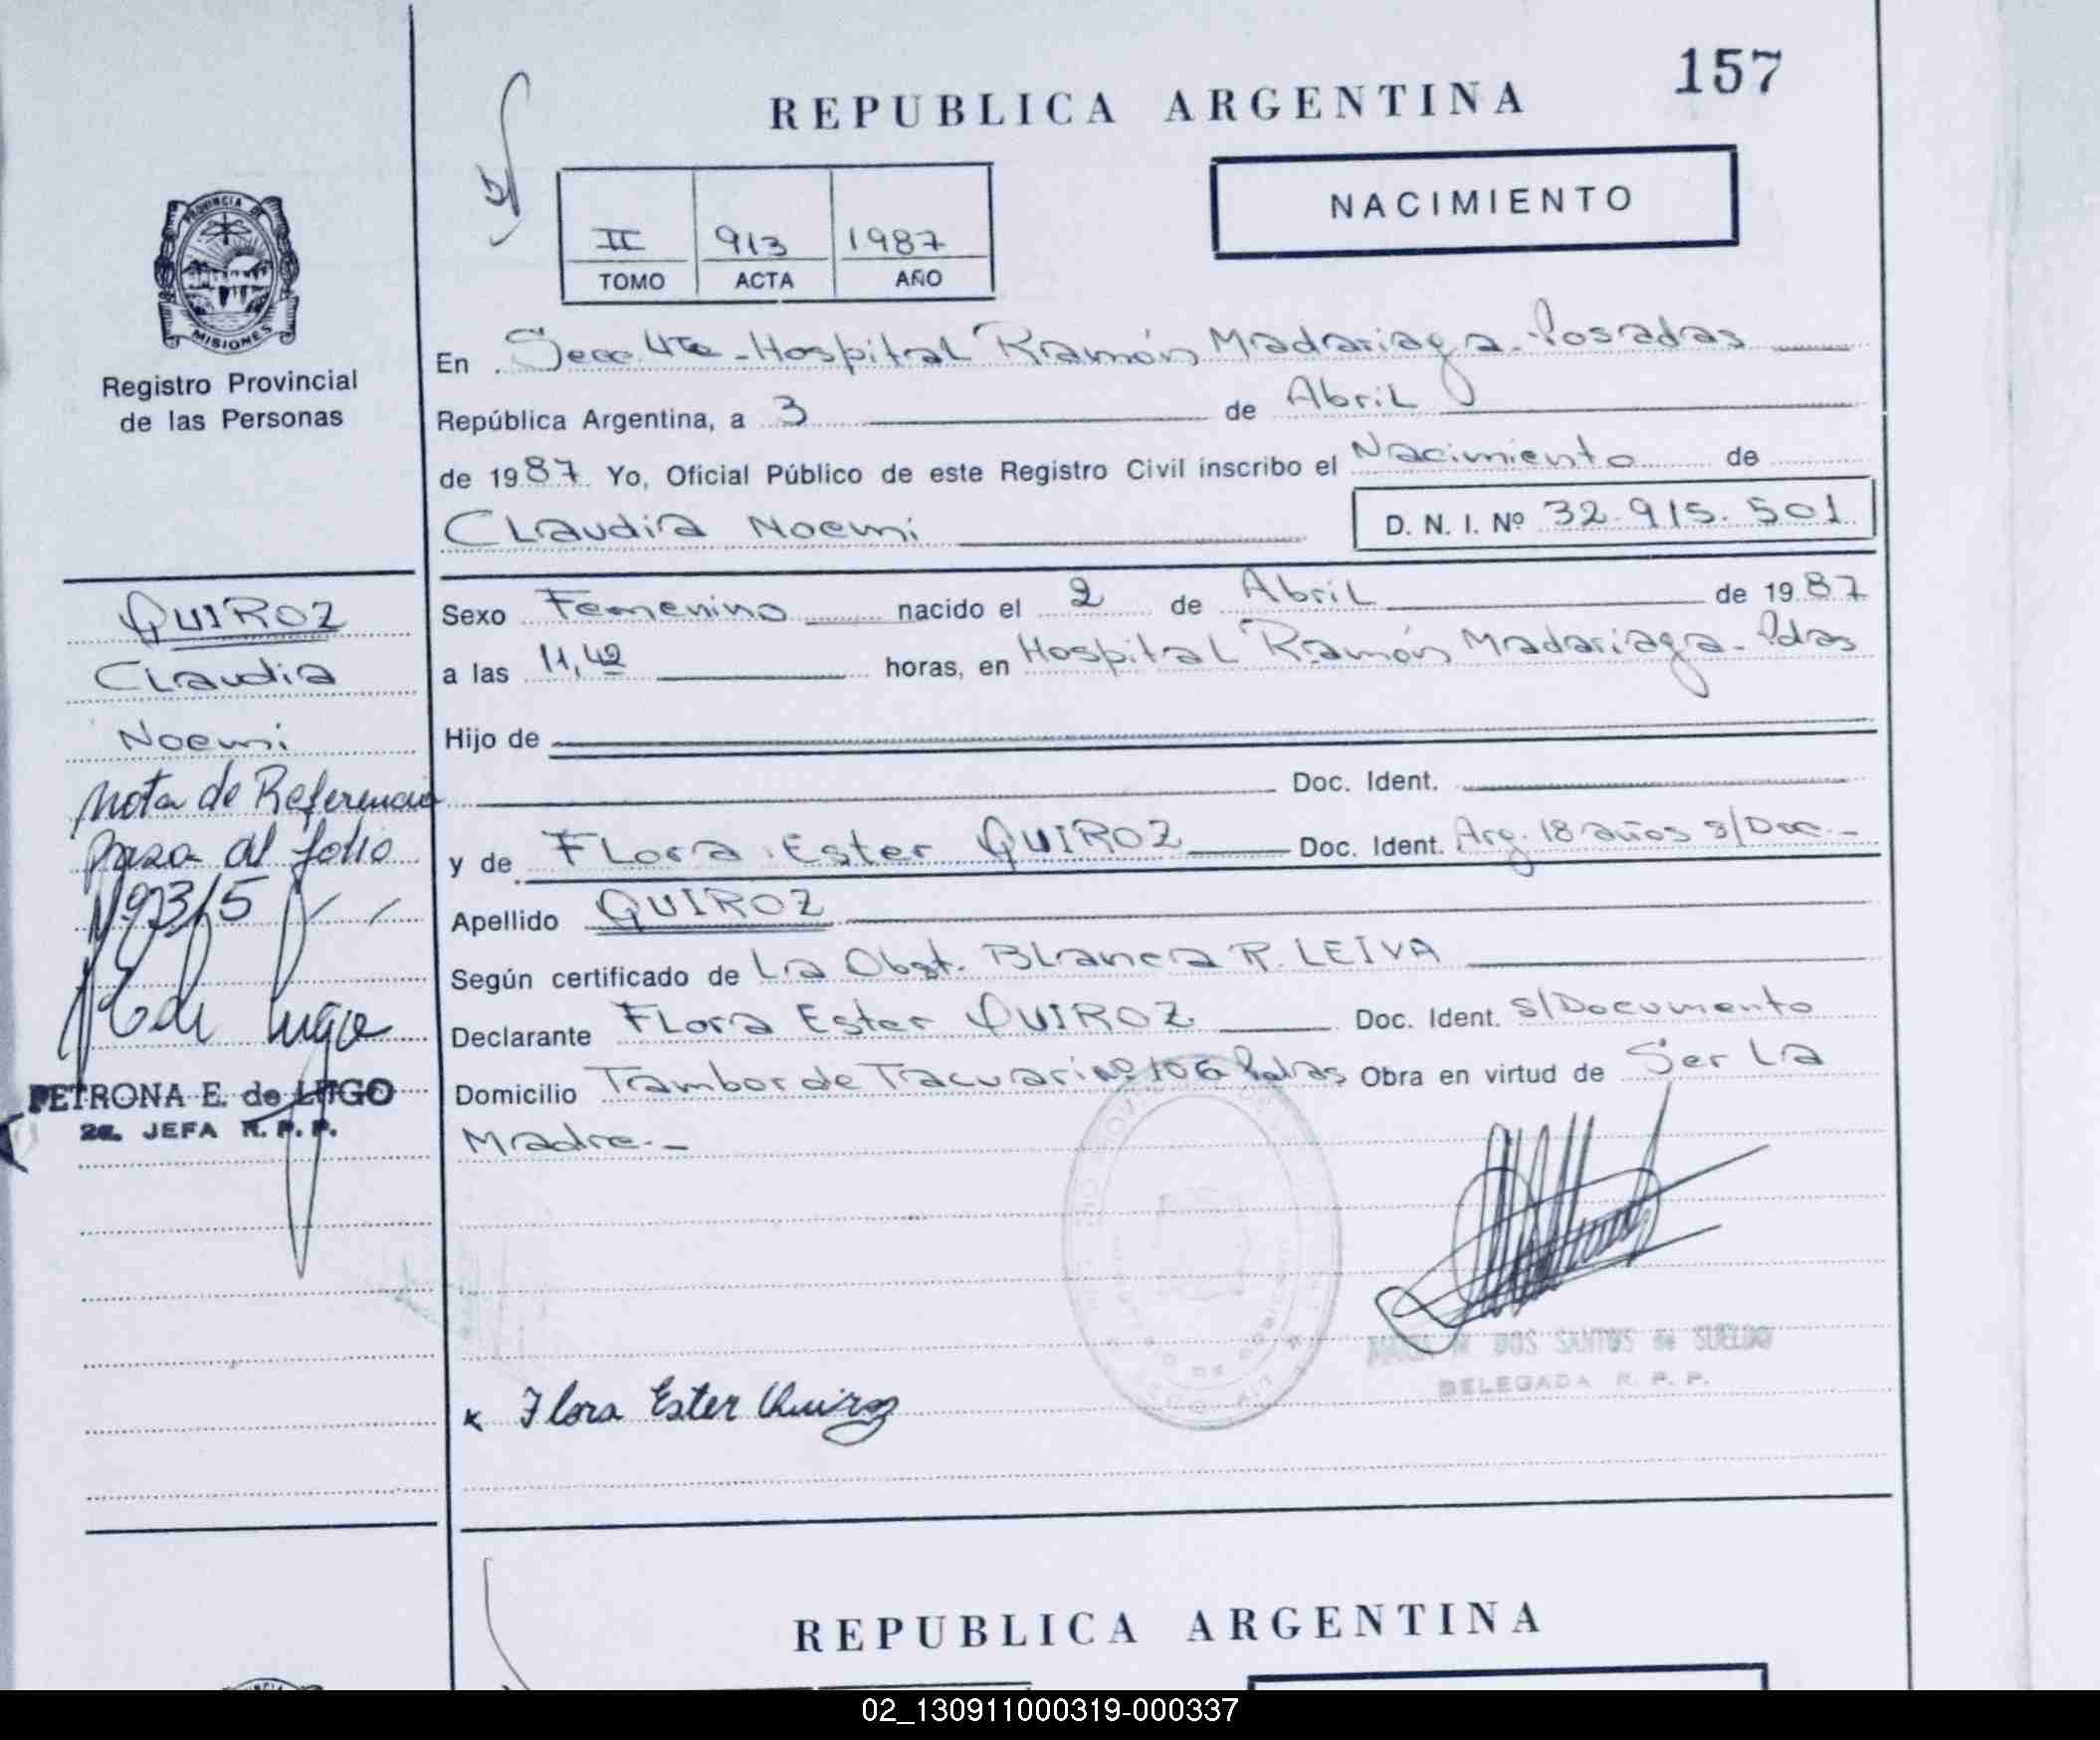 157
REPUBLICA ARGENTINA
NACIMIENTO
II 913 1987
TOMO ACTA AÑO
PROVINCIA DE MISIONES
Registro Provincial
de las Personas
En Secc. 4ta - Hospital Ramón Madariaga - Posadas
República Argentina, a 3 de Abril
de 1987 Yo, Oficial Público de este Registro Civil inscribo el Nacimiento de
Claudia Noemi D. N. I. Nº 32.915.501
QUIROZ
Claudia
Noemi
Nota de Referencia
pasa al folio
Nº 93/5
PETRONA E. de LUGO
2a. JEFA R. P. P.
Sexo Femenino nacido el 2 de Abril de 1987
a las 11,42 horas, en Hospital Ramón Madariaga - Pdas
Hijo de
Doc. Ident.
y de Flora Ester QUIROZ Doc. Ident. Arg. 18 años s/Doc.-
Apellido QUIROZ
Según certificado de La Obst. Blanca R. LEIVA
Declarante Flora Ester QUIROZ Doc. Ident. s/Documento
Domicilio Tambor de Tacuari nº 106 Pdas Obra en virtud de Ser La
Madre.-
DOS SANTOS de SUELDO
DELEGADA R. P. P.
x Flora Ester Quiroz
REPUBLICA ARGENTINA
02_130911000319-000337